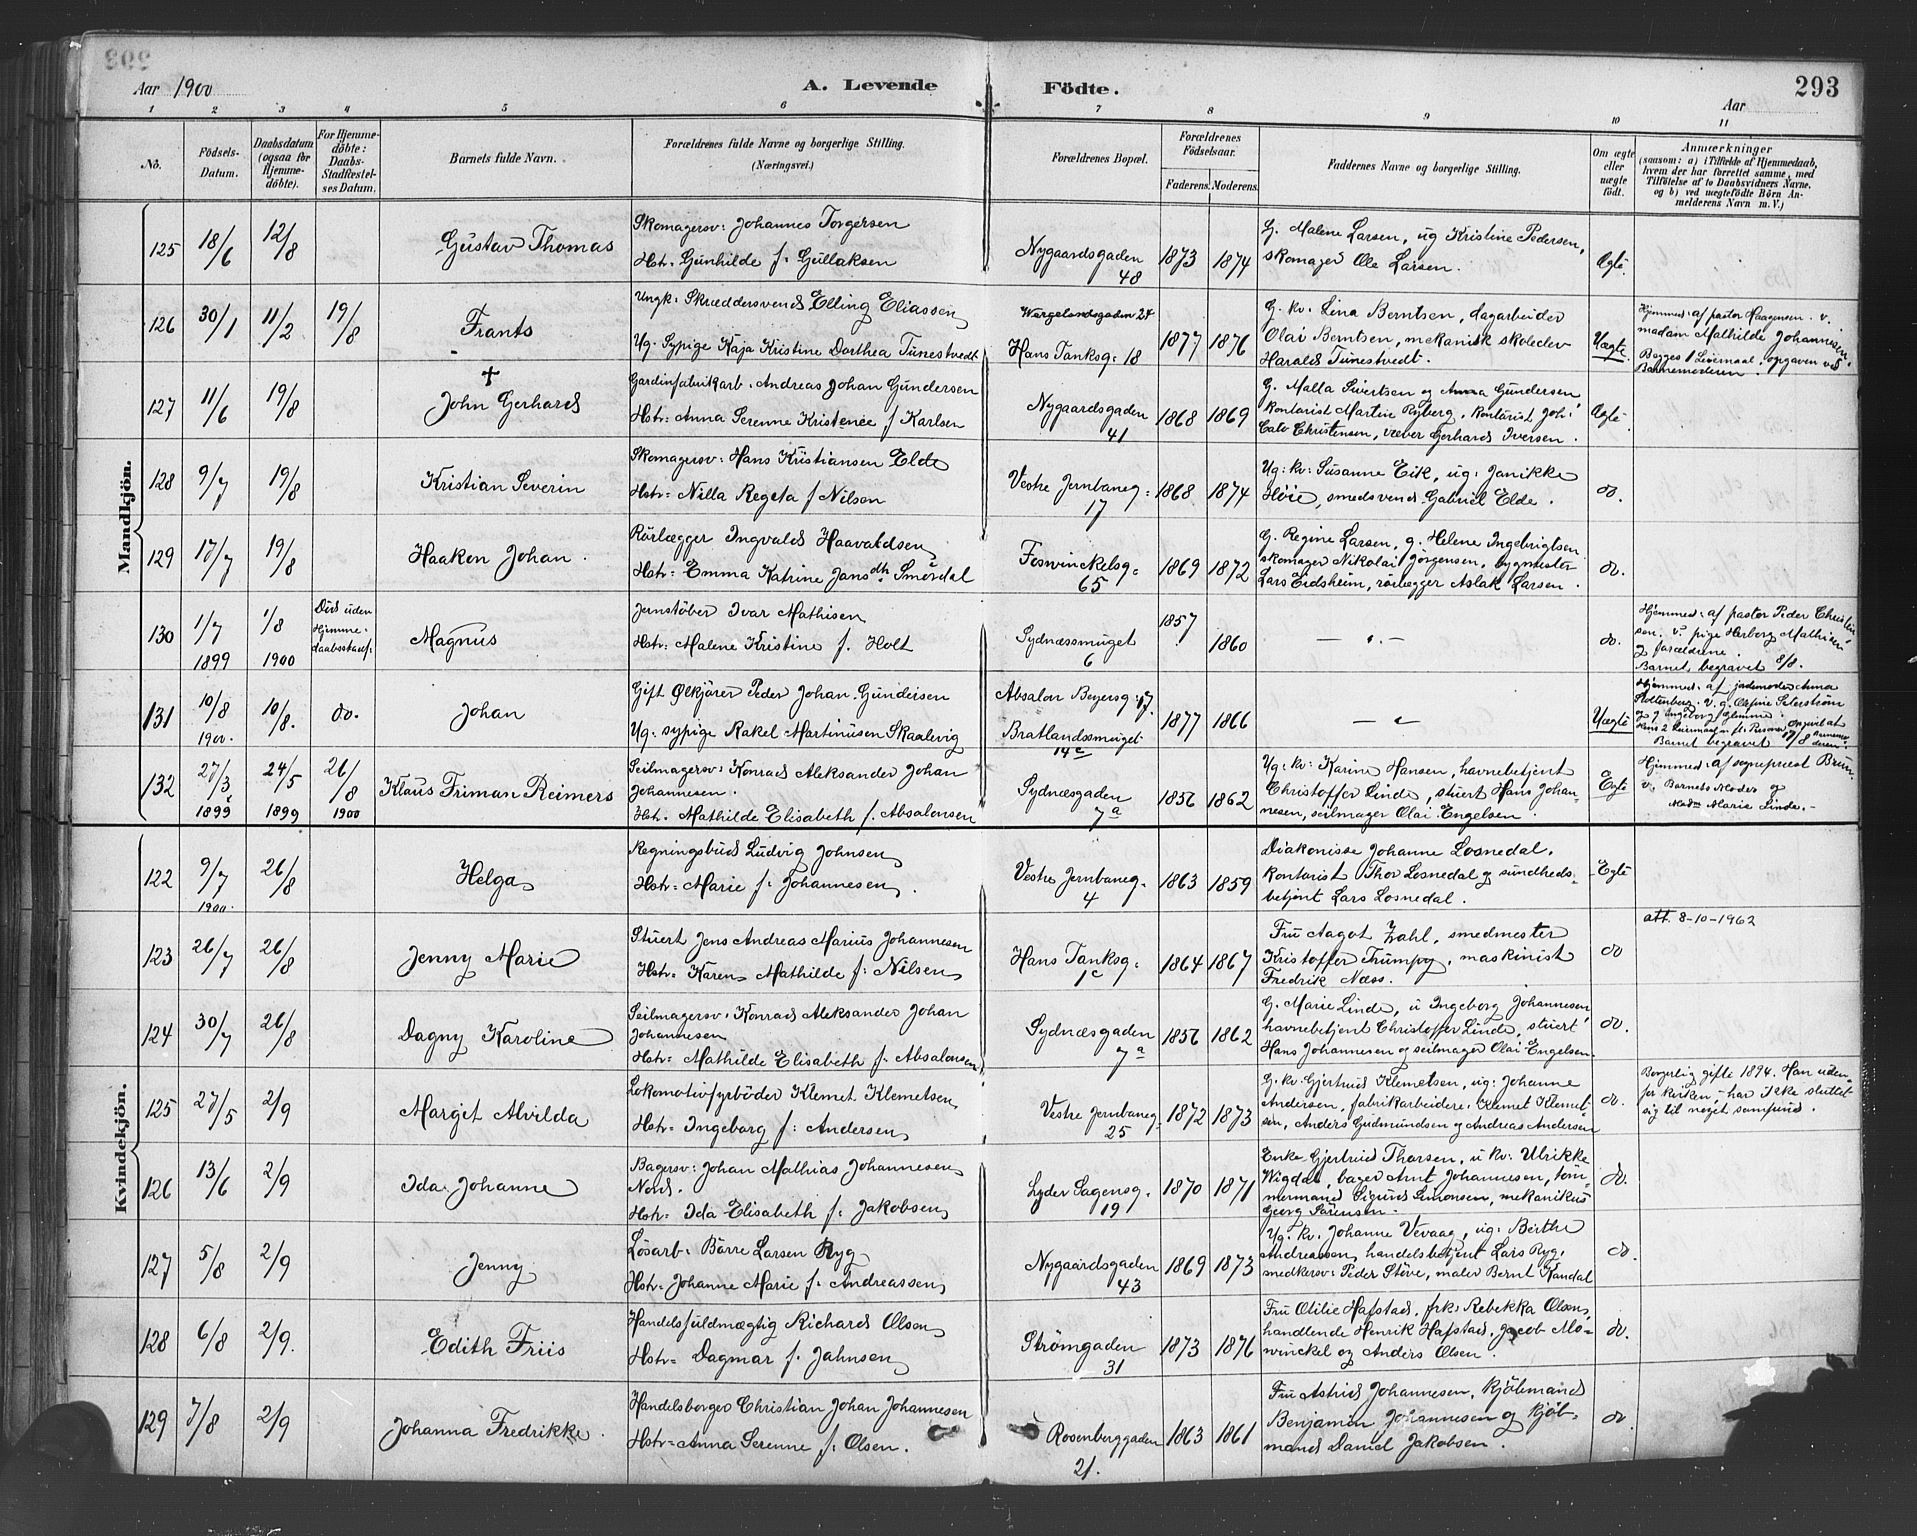 293
Aar 1900
A. Levende
Födte.
Aar
1 2 3 4 5 6 7 8 9 10 11
No.
Födsels-
Datum.
Daabsdatum
(ogsaa for
Hjemme-
döbte).
For Hjemme-
döbte:
Daabs-
Stadfæstel-
ses Datum.
Barnets fulde Navn.
Forældrenes fulde Navne og borgerlige Stilling.
(Næringsvei.)
Forældrenes Bopæl.
Forældrenes
Födselsaar.
Faderens. Moderens.
Faddernes Navne og borgerlige Stilling.
Om ægte
eller
uægte
födt.
Anmærkninger
(saasom: a) i Tilfælde af Hjemmedaab,
hvem der har forrettet samme, med
Tilföielse af to Daabsvidners Navne.
og b) ved uegtefödte Börn An-
melderens Navn m. V.)
Mandkjön.
125
18/6
12/8
Gustav Thomas
Skomagersv: Johannes Torgersen
Hstr: Gunhilde f: Gullaksen
Nygaardsgaden
48
1873 1874
G. Malene Larsen, ug Kristine Pedersen,
skomager Ole Larsen.
Ægte
126
30/1
11/2
19/8
Frants
Ungk: Skræddersvend Elling Eliassen
Ug. Sypige Kaja Kristine Dorthea Tunestvedt
Wergelandsgaden 24
Hans Tanksg: 18
1877 1876
G. kv: Lina Berntsen, dagarbeider
Olai Berntsen, mekanisk skoleelev
Harald Tunestvedt.
Uægte.
Hjemmed: af pastor Haagensen. v.
madam Mathilde Johannesen.
Begges 1 Leiermaal. opgaven ved
Barnemoderen.
127
11/6
19/8
✝
John Gerhard
Gardinfabrikarb. Andreas Johan Gundersen
Hstr: Anna Serenne Kristence f Karlsen
Nygaardsgaden
41
1868 1869
G. Malla Sivertsen og Anna Gundersen,
kontorist Martin Ryberg, kontorist Joh:
Calv Christensen, væver Gerhard Iversen.
Ægte.
128
9/7
19/8
Kristian Severin
Skomagersv: Hans Kristiansen Elde
Hstr: Nilla Regeta f Nilsen
Vestre Jernbaneg:
17
1868 1874
Ug: kv: Susanne Eik, ug: Janikke
Høie, smedsvend Gabriel Elde.
do.
129
17/7
19/8
Haaken Johan.
Rörlægger Ingvald Haavaldsen
Hstr: Emma Katrine Jansdth Smördal
Foswinckelsg:
65
1869 1872
G. Regine Larsen, g. Helene Ingebrigtsen
skomager Nikolai Jörgensen, bygmester
Lars Eidsheim, rörlægger Aslak Larsen.
do.
130
1/7
1899
1/8
1900
Död uden
Hjemme-
daabsstadf:
Magnus
Jernstöber Ivar Mathisen
Hstr: Malene Kristine f. Holt
Sydnæssmuget
6
1857
1860
do.
Hjemmed: af pastor Peder Christen
sen. v. pige Herborg Mathisen
og forældrene.
Barnet begravet 8/8.
131
10/8
1900.
10/8.
do.
Johan
Gift Ølkjörer Peder Johan Gundersen
Ug: sypige Rakel Martinusen Skaalevig
Absalon Beyersg: 17.
Bratlandssmuget
14c
1877 1866
Uægte
Hjemmed: af jordemoder Anna
Barnet begravet 17/8
132
27/3
1899
24/5
1899
26/8
1900
Klaus Friman Reimers
Seilmagersv: Konrad Aleksander Johan
Johannesen.
Hstr: Mathilde Elisabeth f. Absalonsen
Sydnæsgaden
7a
1856 1862
Ug: kv: Karine Hansen, havnebetjent
Christoffer Linde, stuert Hans Johan-
nesen, seilmager Olai Engelsen.
Egte
Hjemmed: af sognepræst Bruun
v. Barnets Moder og
Madm Marie Linde.-
Kvindekjön.
122
9/7
1900.
26/8
Helga
Regningsbud Ludvig Johnsen
Hstr: Marie f: Johannesen.
Vestre Jernbaneg.
4
1863 1859
Diakonisse Johanne Losnedal.
kontorist Thor Losnedal og sundheds-
betjent Lars Losnedal.
Egte
123
26/7
26/8
Jenny Marie
Stuert Jens Andreas Marius Johannesen
Hstr: Karen Mathilde f: Nilsen
Hans Tanksg:
1c
1864 1867
Fru Aagot Zahl, smedmester
Kristoffer Trumpy, maskinist
Fredrik Næss.
do
att. 8-10-1962
124
30/7
26/8
Dagny Karoline
Seilmagersv: Konrad Aleksander Johan
Johannesen
Hstr: Mathilde Elisabeth f. Absalonsen
Sydnæsgaden
7a
1856 1862
G. Marie Linde, u Ingeborg Johannesen,
havnebetjent Christoffer Linde, stuert
Hans Johannesen og seilmager Olai Engelsen.
do.
125
27/5
2/9
Margit Alvilda
Lokomotivfyrböder Klemet Klemetsen
Hstr: Ingeborg f: Andersen
Vestre Jernbaneg:
25
1872 1873
G. kv. Gjertrud Klemetsen, ug: Johanne
Andersen, fabrikarbeidere: Klemet Klemet-
sen, Anders Gudmundsen og Andreas Andersen
do.
Borgerlig gifte 1894. Han uden-
for kirken, har ikke sluttet
sig til noget samfund.
126
13/6
2/9
Ida Johanne
Bagersv: Johan Mathias Johannesen
Nord.
Hstr: Ida Elisabeth f: Jakobsen
Lyder Sagensg.
19
1870 1871
Enke Gjertrud Thorsen, u kv: Ulrikke
Wigdal, bager Arnt Johannesen, töm-
mermand Sigurd Simonsen, mekanikus
Georg Sörensen.
do.
127
5/8
2/9
Jenny
Lösarb: Börre Larsen Ryg
Hstr: Johanne Marie f: Andreassen
Nygaardsgaden
43
1869 1873
Ug. kv. Johanne Vevaag, ug: Birthe
Andreassen, handelsbetjent Lars Ryg,
snedkersv: Peder Støve, maler Bernt Kandal
do
128
6/8
2/9.
Edith Friis
Handelsfuldmægtig Richard Olsen
Hstr: Dagmar f. Jahnsen
Strömgaden
31
1873 1876
Fru Otilie Hafstad, frk: Rebekka Olsen,
handlende Henrik Hafstad, Jacob Mo-
winckel og Anders Olsen.
do.
129
7/8
2/9
Johanna Fredrikke.
Handelsborger Christian Johan Johannesen
Hstr: Anna Serenne f: Olsen.
Rosenberggaden
21.
1863 1861
Fru Astrid Johannesen, kjöbmand
Benjamin Johannesen og kjöb-
mand Daniel Jakobsen.
do